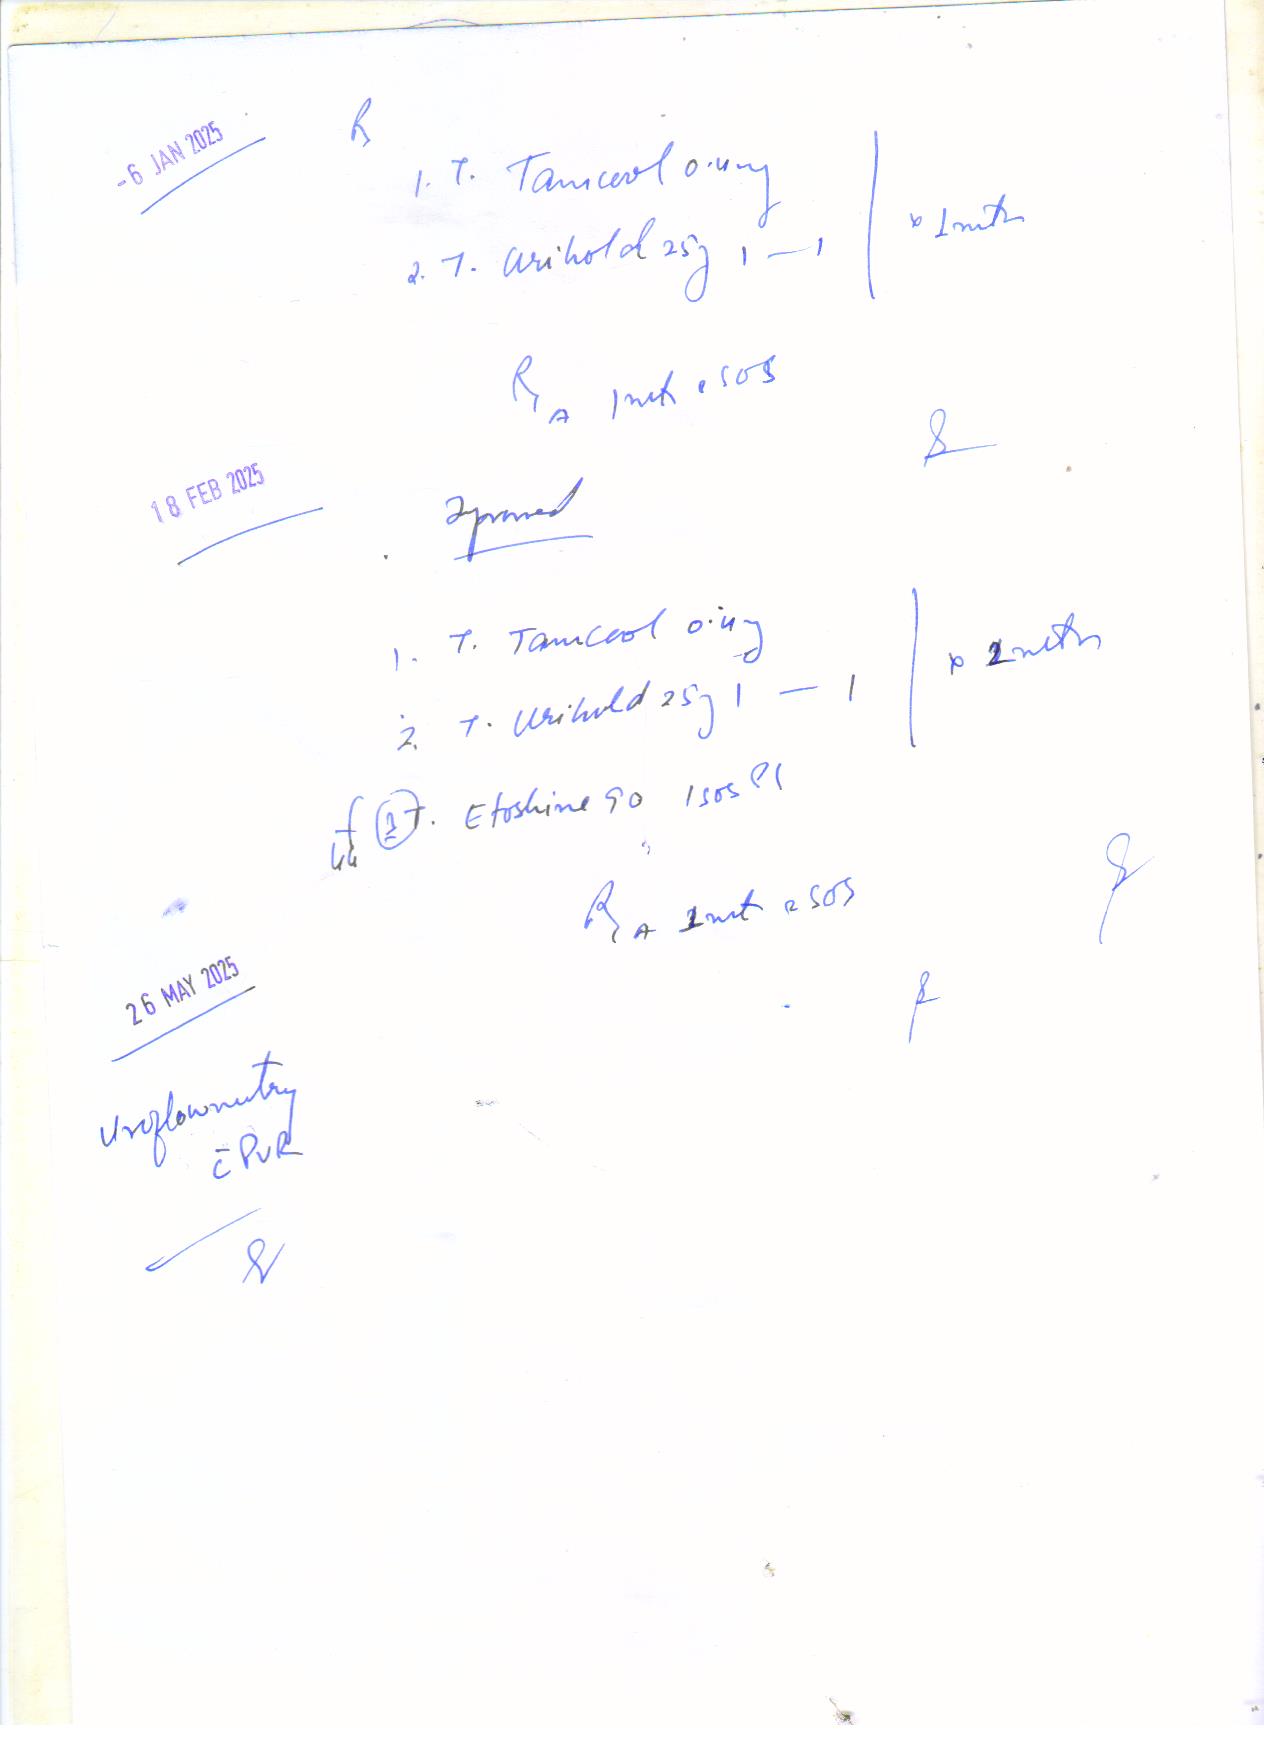 -6 JAN 2025
R
1. T. Tamceol 0.4mg
2. T. Urihold 25g 1 — 1
x 1 mth
R A 1 mth c SOS
18 FEB 2025
Improved
1. T. Tamceol 0.4g
2. T. Urihold 25g 1 — 1
x 2 mth
3 T. Etoshine 90 1 SOS
R A 2 mth c SOS
26 MAY 2025
Uroflowmetry
c̄ PVR